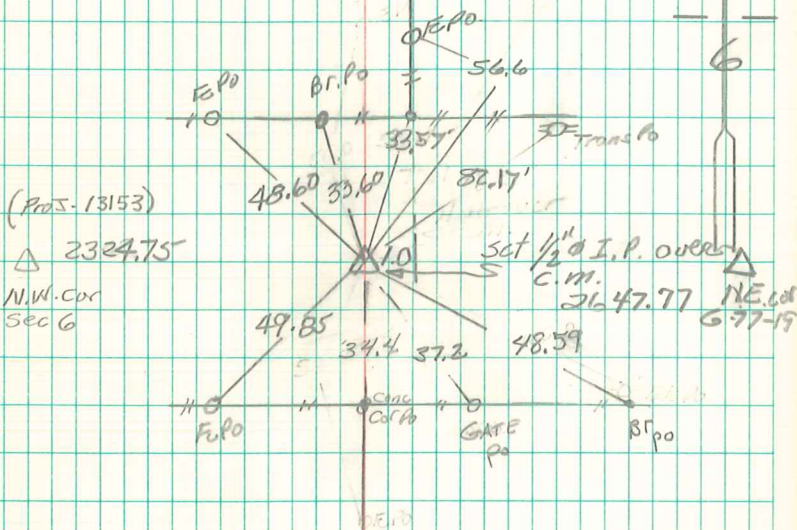 FePo
56.6
6
FePo
Br.Po
33.57'
TransPo
48.60
33.60
82.17'
(Proj-13153)
△ 2324.75
N.W.Cor
Sec 6
1.0
Set 1/2" ø I.P. over
C.M.
2647.77
△
N.E.Cor
6-77-19
49.85
34.4
37.2
48.59
FePo
Conc
CorPo
GATE
Po
Br
Po